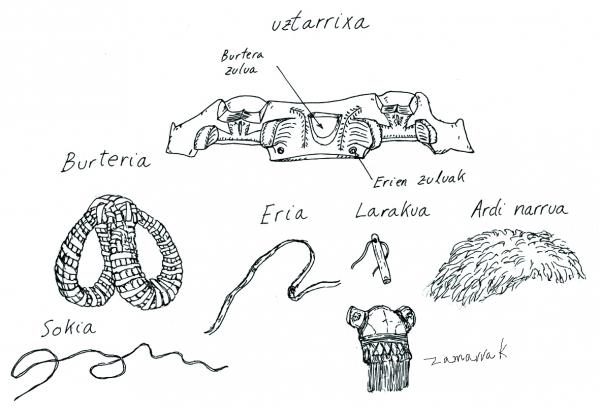 uztarrixa
Burtera
zulua
Burteria
Erien zuluak
Eria
Larakua
Ardi narrua
Sokia
zamarrak